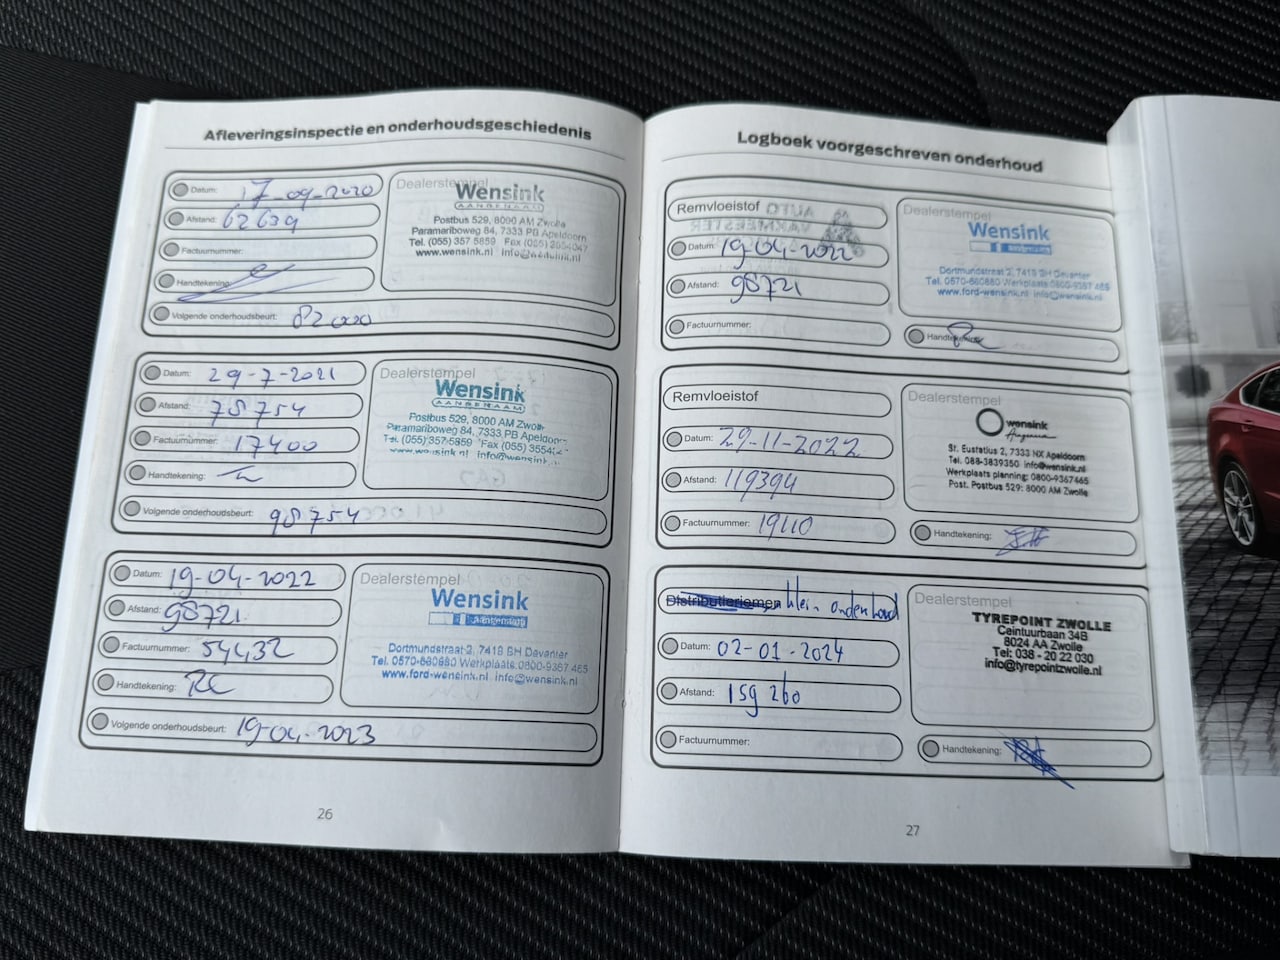 Afleveringsinspectie en onderhoudsgeschiedenis
Datum: 17-09-2020
Afstand: 62639
Factuurnummer:
Handtekening:
Volgende onderhoudsbeurt: 82000
Dealerstempel
Wensink
AANGENAAM
Postbus 529, 8000 AM Zwolle
Paramariboweg 84, 7333 PB Apeldoorn
Tel. (055) 357 5859 Fax (055)
www.wensink.nl info@wensink.nl
Datum: 29-7-2021
Afstand: 78754
Factuurnummer: 17400
Handtekening:
Volgende onderhoudsbeurt: 98754
Dealerstempel
Wensink
AANGENAAM
Postbus 529, 8000 AM Zwolle
Paramariboweg 84, 7333 PB Apeldoorn
Tel. (055) 357 5859 Fax (055)
www.wensink.nl info@wensink.
Datum: 19-04-2022
Afstand: 98721
Factuurnummer: 54432
Handtekening:
Volgende onderhoudsbeurt: 19-04-2023
Dealerstempel
Wensink
Aangenaam
Dortmundstraat 2, 7418 BH Deventer
Tel. 0570-660880 Werkplaats:0800-9367 465
www.ford-wensink.nl info@wensink.nl
26
Logboek voorgeschreven onderhoud
Remvloeistof
Datum: 19-04-2022
Afstand: 98721
Factuurnummer:
Dealerstempel
Wensink
Aangenaam
Dortmundstraat 2, 7418 BH Deventer
Tel. 0570-660880 Werkplaats:0800-9367 465
www.ford-wensink.nl info@wensink.nl
Handtekening:
Remvloeistof
Datum: 29-11-2022
Afstand: 119394
Factuurnummer: 19110
Dealerstempel
wensink
Aangenaam
St. Eustatius 2, 7333 NX Apeldoorn
Tel. 088-3839350 info@wensink.nl
Werkplaats planning: 0800-9367465
Post. Postbus 529: 8000 AM Zwolle
Handtekening:
Distributieriemen klein onderhoud
Datum: 02-01-2024
Afstand: 159260
Factuurnummer:
Dealerstempel
TYREPOINT ZWOLLE
Ceintuurbaan 34B
8024 AA Zwolle
Tel: 038 - 20 22 030
info@tyrepointzwolle.nl
Handtekening:
27